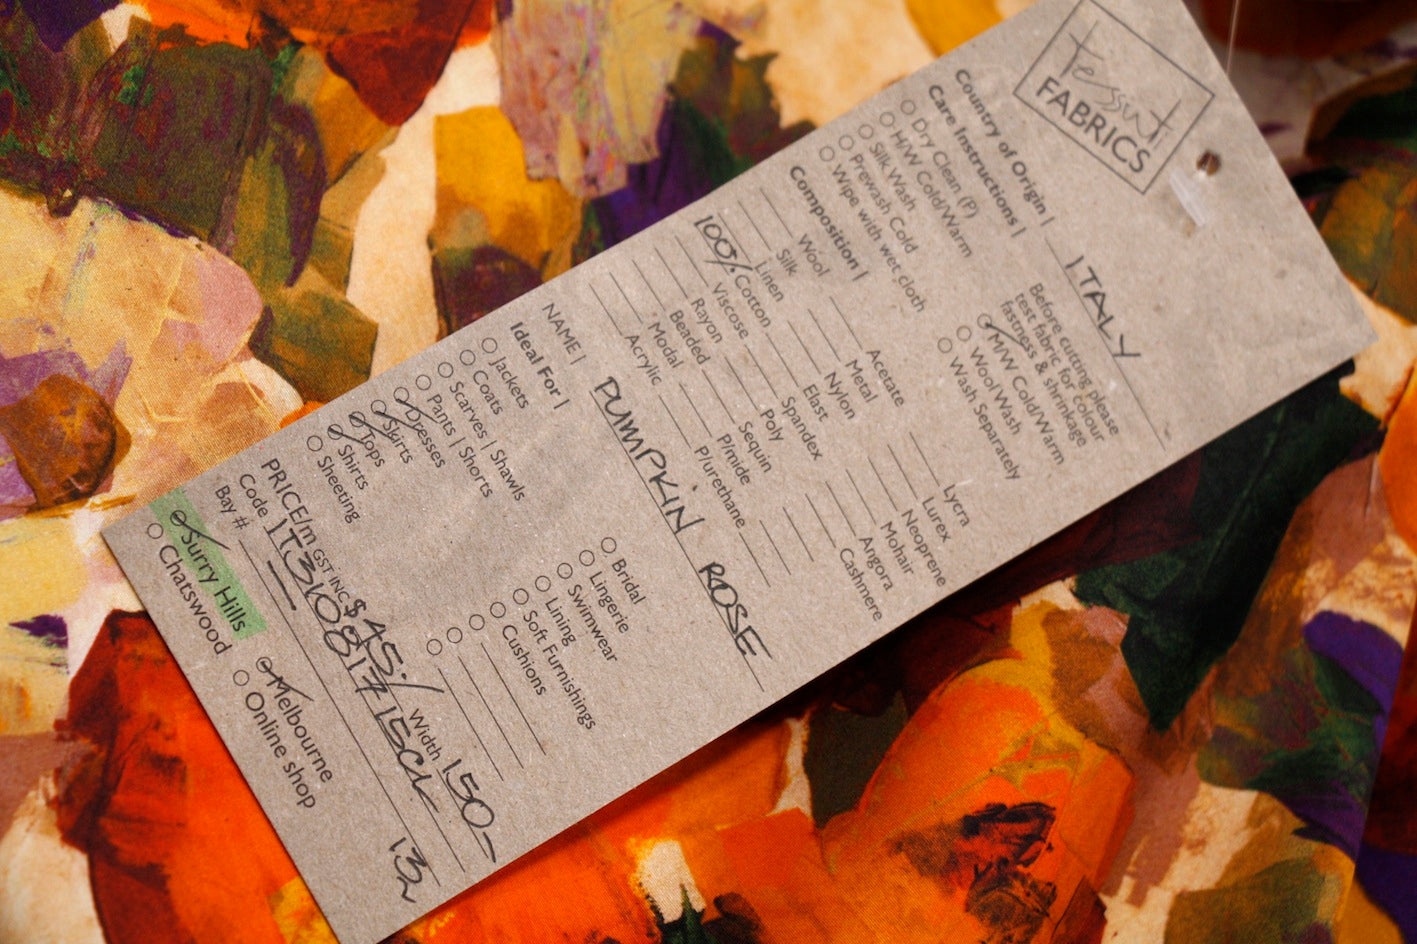 tessuti
FABRICS
Country of Origin | ITALY
Care Instructions |
Dry Clean (P)
H/W Cold/Warm
Silk Wash
Prewash Cold
Wipe with wet cloth
Before cutting please
test fabric for colour
fastness & shrinkage
M/W Cold/Warm
Wool Wash
Wash Separately
Composition |
Wool
Silk
Linen
100% Cotton
Viscose
Rayon
Beaded
Modal
Acrylic
Acetate
Metal
Nylon
Elast
Spandex
Poly
Sequin
P/mide
P/urethane
Lycra
Lurex
Neoprene
Mohair
Angora
Cashmere
NAME | PUMPKIN ROSE
Ideal For |
Jackets
Coats
Scarves | Shawls
Pants | Shorts
Dresses
Skirts
Tops
Shirts
Sheeting
Bridal
Lingerie
Swimwear
Lining
Soft Furnishings
Cushions
PRICE/m GST INC $45.- Width 150-
Code IT310817
Bay #
Surry Hills
Chatswood
Melbourne
Online shop